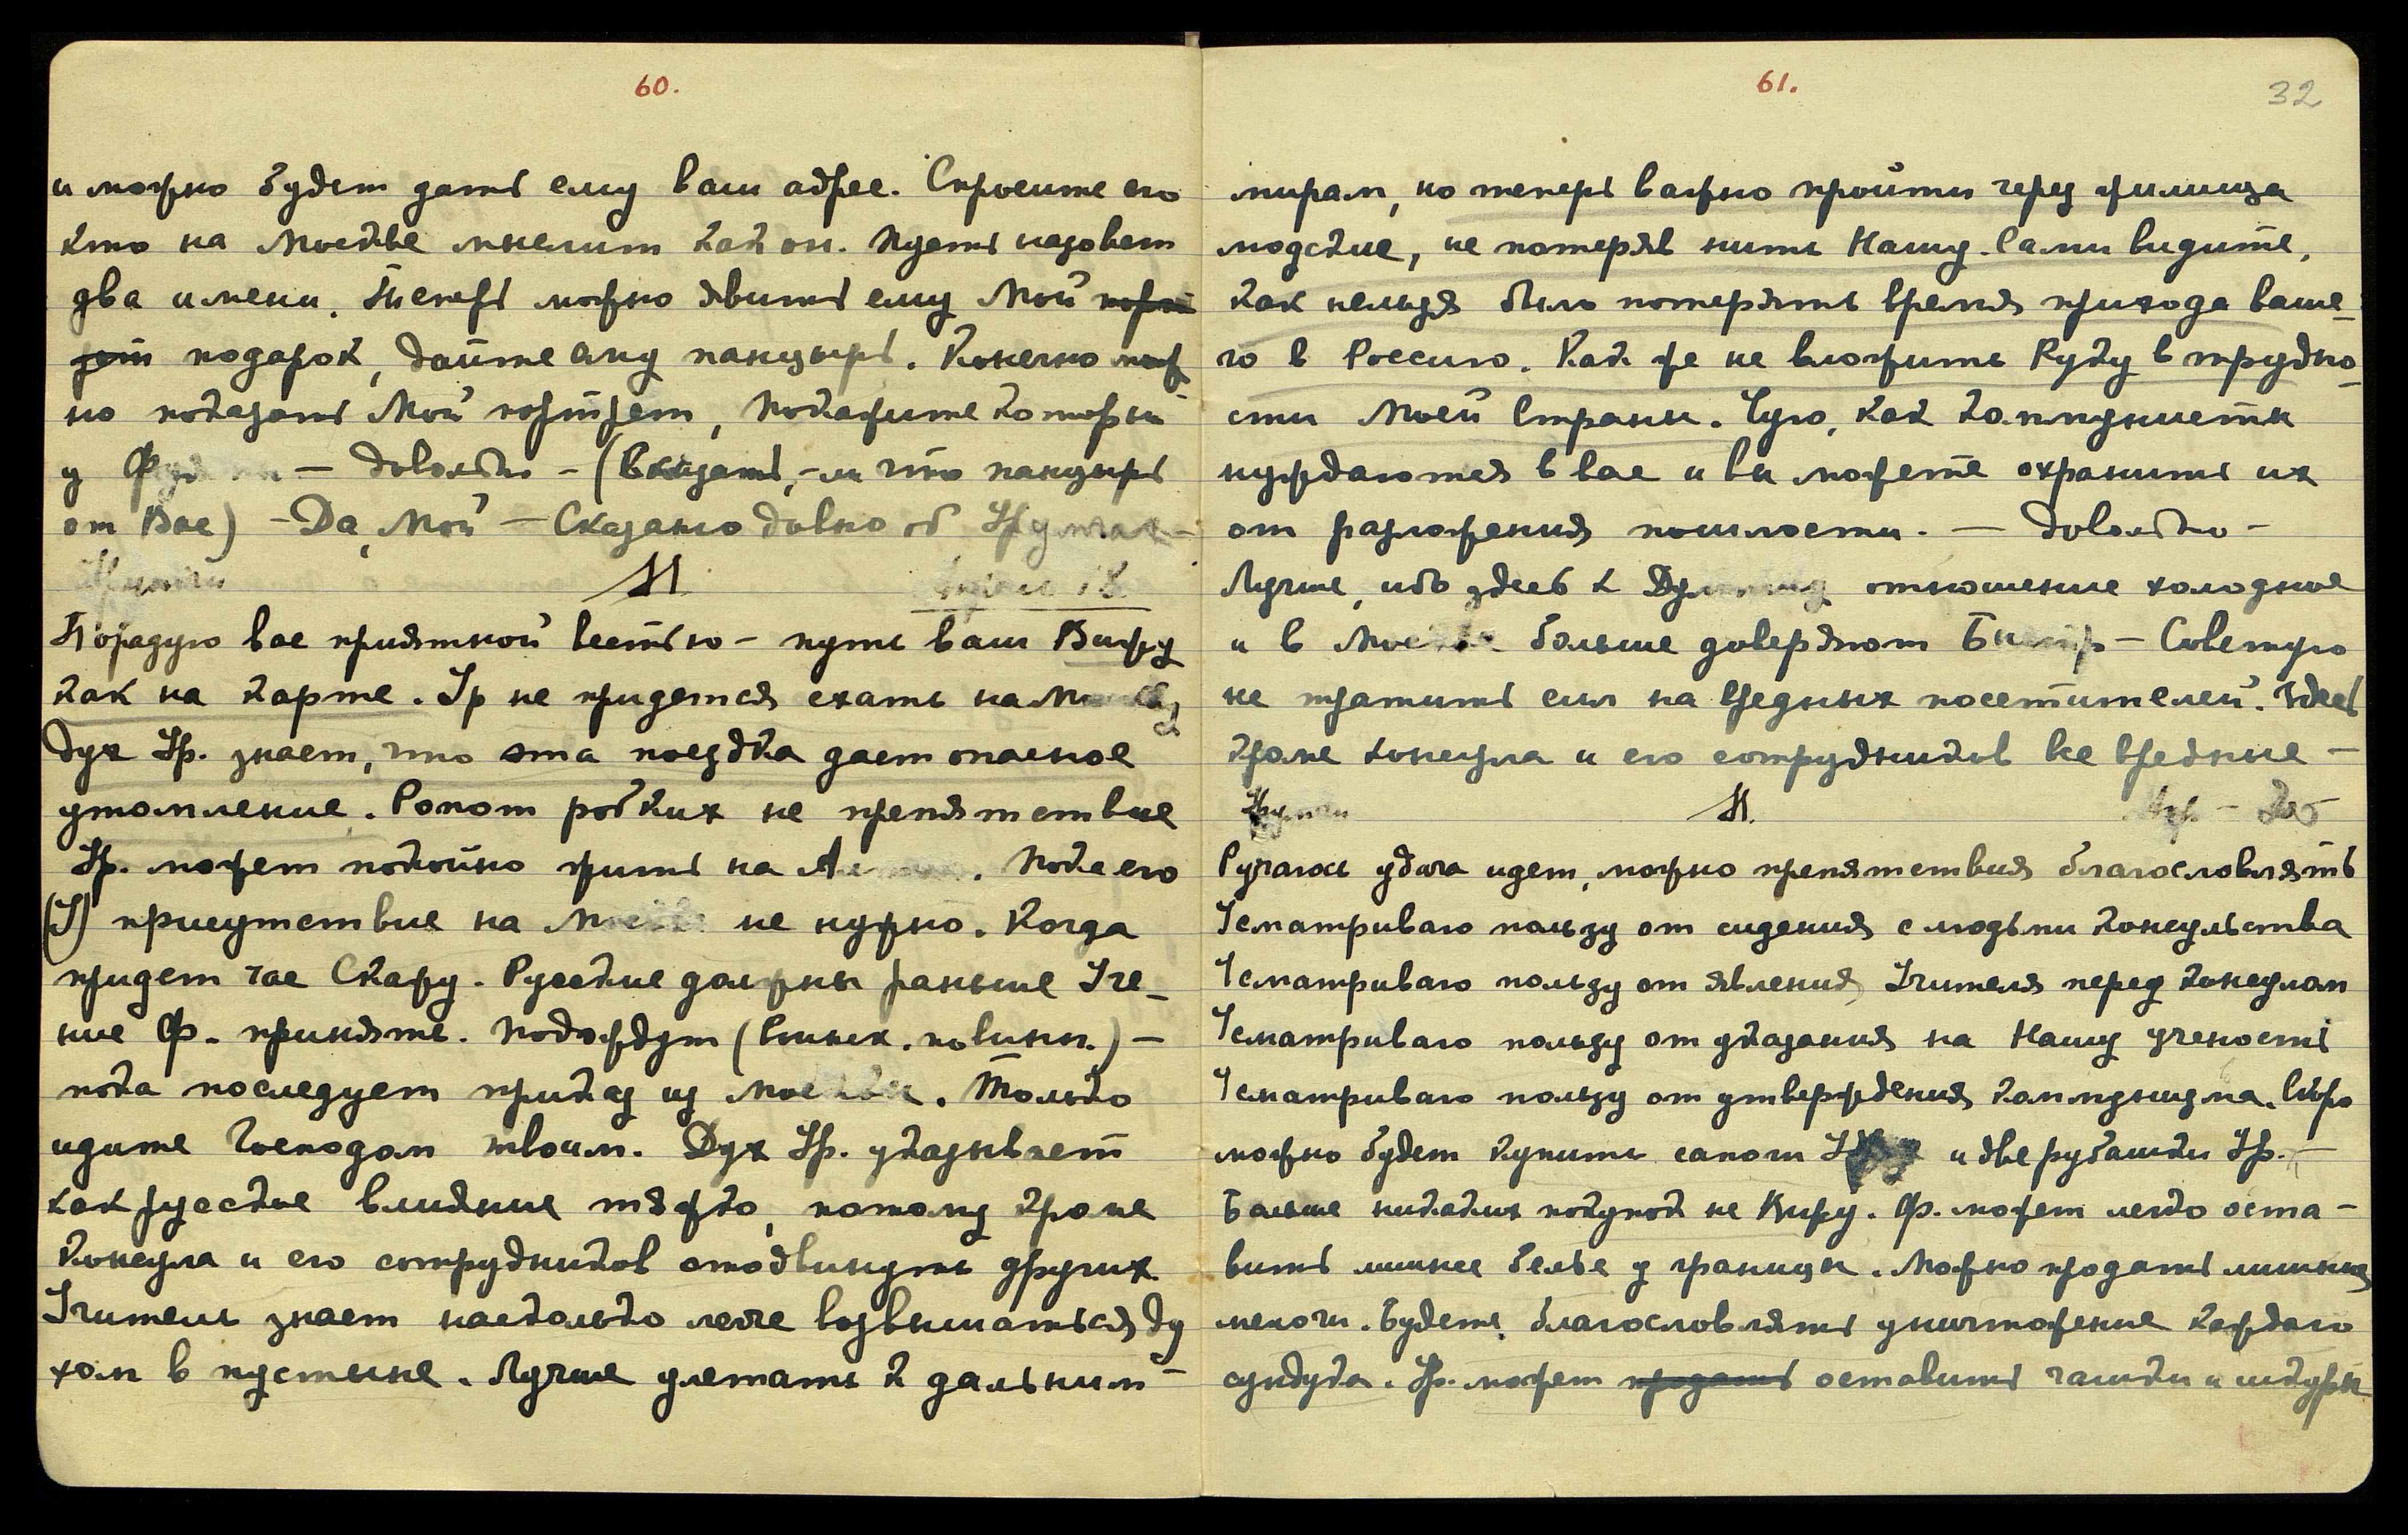 60.
и можно будет дать ему ваш адрес. Спросите его
кто на Москве мыслит как он. Пусть назовет
два имени. Теперь можно явить ему Мой порт
рет подарок, дайте ему панцырь. Конечно мож
но показать Мой портрет, покажите который
у — довольно — (Сказать, -ли что панцырь
от Вас) — Да, Мой — Сказано давно об
М.
Порадую вас приятной вестью — путь ваш Вижу
как на карте. Ур не придется ехать на
Дух Ур. знает, что эта поездка дает опасное
утомление. Ропот робких не препятствие
Ур. может покойно жить на. Пока его
(У) присутствие на Москве не нужно. Когда
придет час Скажу. Русские должны раньше Уче-
ние Ф. принять. Подождут
пока последует приказ из Москвы. Только
идите Господом твоим. Дух Ур. указывает
как русское влияние тяжко, потому кроме
Консула и его сотрудников отодвинуть других
Учитель знает насколько легче возвышаться ду
хом в пустыне. Лучше улетать к дальним
61.
32
мирам, но теперь важно пройти через жилища
людские, не потеряв нить Нашу. Сами видите,
как нельзя было потерять время прихода ваше-
го в Россию. Как же не вложить Руку в трудно-
сти Моей Страны. Чую, как коммунисты
нуждаются в вас и вы можете охранить их
от разложения пошлости. — довольно —
Лучше, ибо здесь к отношение холодное
и в Москве больше доверяют — Советую
не тратить сил на вредных посетителей. Здесь
кроме консула и его сотрудников все вредные —
М.
Ручаюсь удача идет, можно препятствия благословлять
Усматриваю пользу от сидения с людьми Консульства
Усматриваю пользу от явления Учителя перед Консулом
Усматриваю пользу от указания на Нашу ученость
Усматриваю пользу от утверждения Коммунизма. Скоро
можно будет купить сапоги и две рубашки Ур. —
Больше никаких покупок не Вижу. Ф. может легко оста-
вить лишнее белье у границы. Можно продать лишние
мелочи. Будете благословлять уничтожение каждого
сундука. Ур. может продать оставить чашки и шкуры